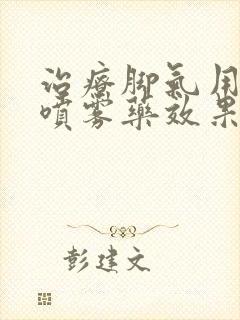 治療脚氣用
噴霧藥效果
彭建文